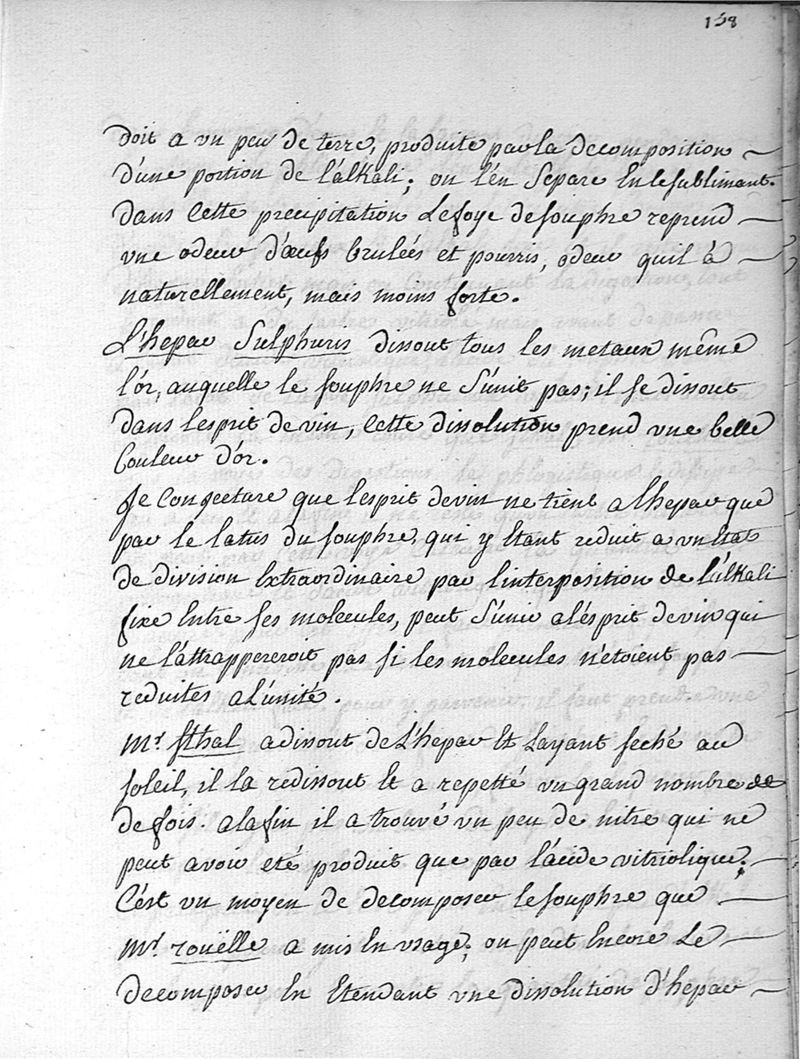 158
doit a un peu de terre, produite par la decomposition
d'une portion de l'alkali; on l'en separe en le sublimant.
dans cette precipitation le foye de souphre reprend
une odeur d'œufs brulées et pourris, odeur quil à
naturellement, mais moins forte.
L'hepar Sulphuris dissout tous les metaux même
l'or, auquelle le souphre ne s'unit pas; il se dissout
dans lesprit de vin, cette dissolution prend une belle
Couleur d'or.
Je congectare que lesprit de vin ne tient a lhepar que
par le latus du souphre, qui y etant reduit a un etat
de division extraordinaire par l'interposition de l'alkali
fixe entre ses molecules, peut s'unir a l'ésprit de vin qui
ne l'attrappereroit pas si les molecules n'etoient pas
reduites a l'unité.
Mr. sthal a dissout de L'hepar et Layant seché au
soleil, il la redissout et a repetté un grand nombre de
de fois. a la fin il a trouvé un peu de nitre qui ne
peut avoir eté produit que par l'acide vitriolique.
C'est un moyen de decomposer le souphre que
Mr. rouëlle a mis en usage; on peut encore le
decomposer en etendant une dissolution d'hepar